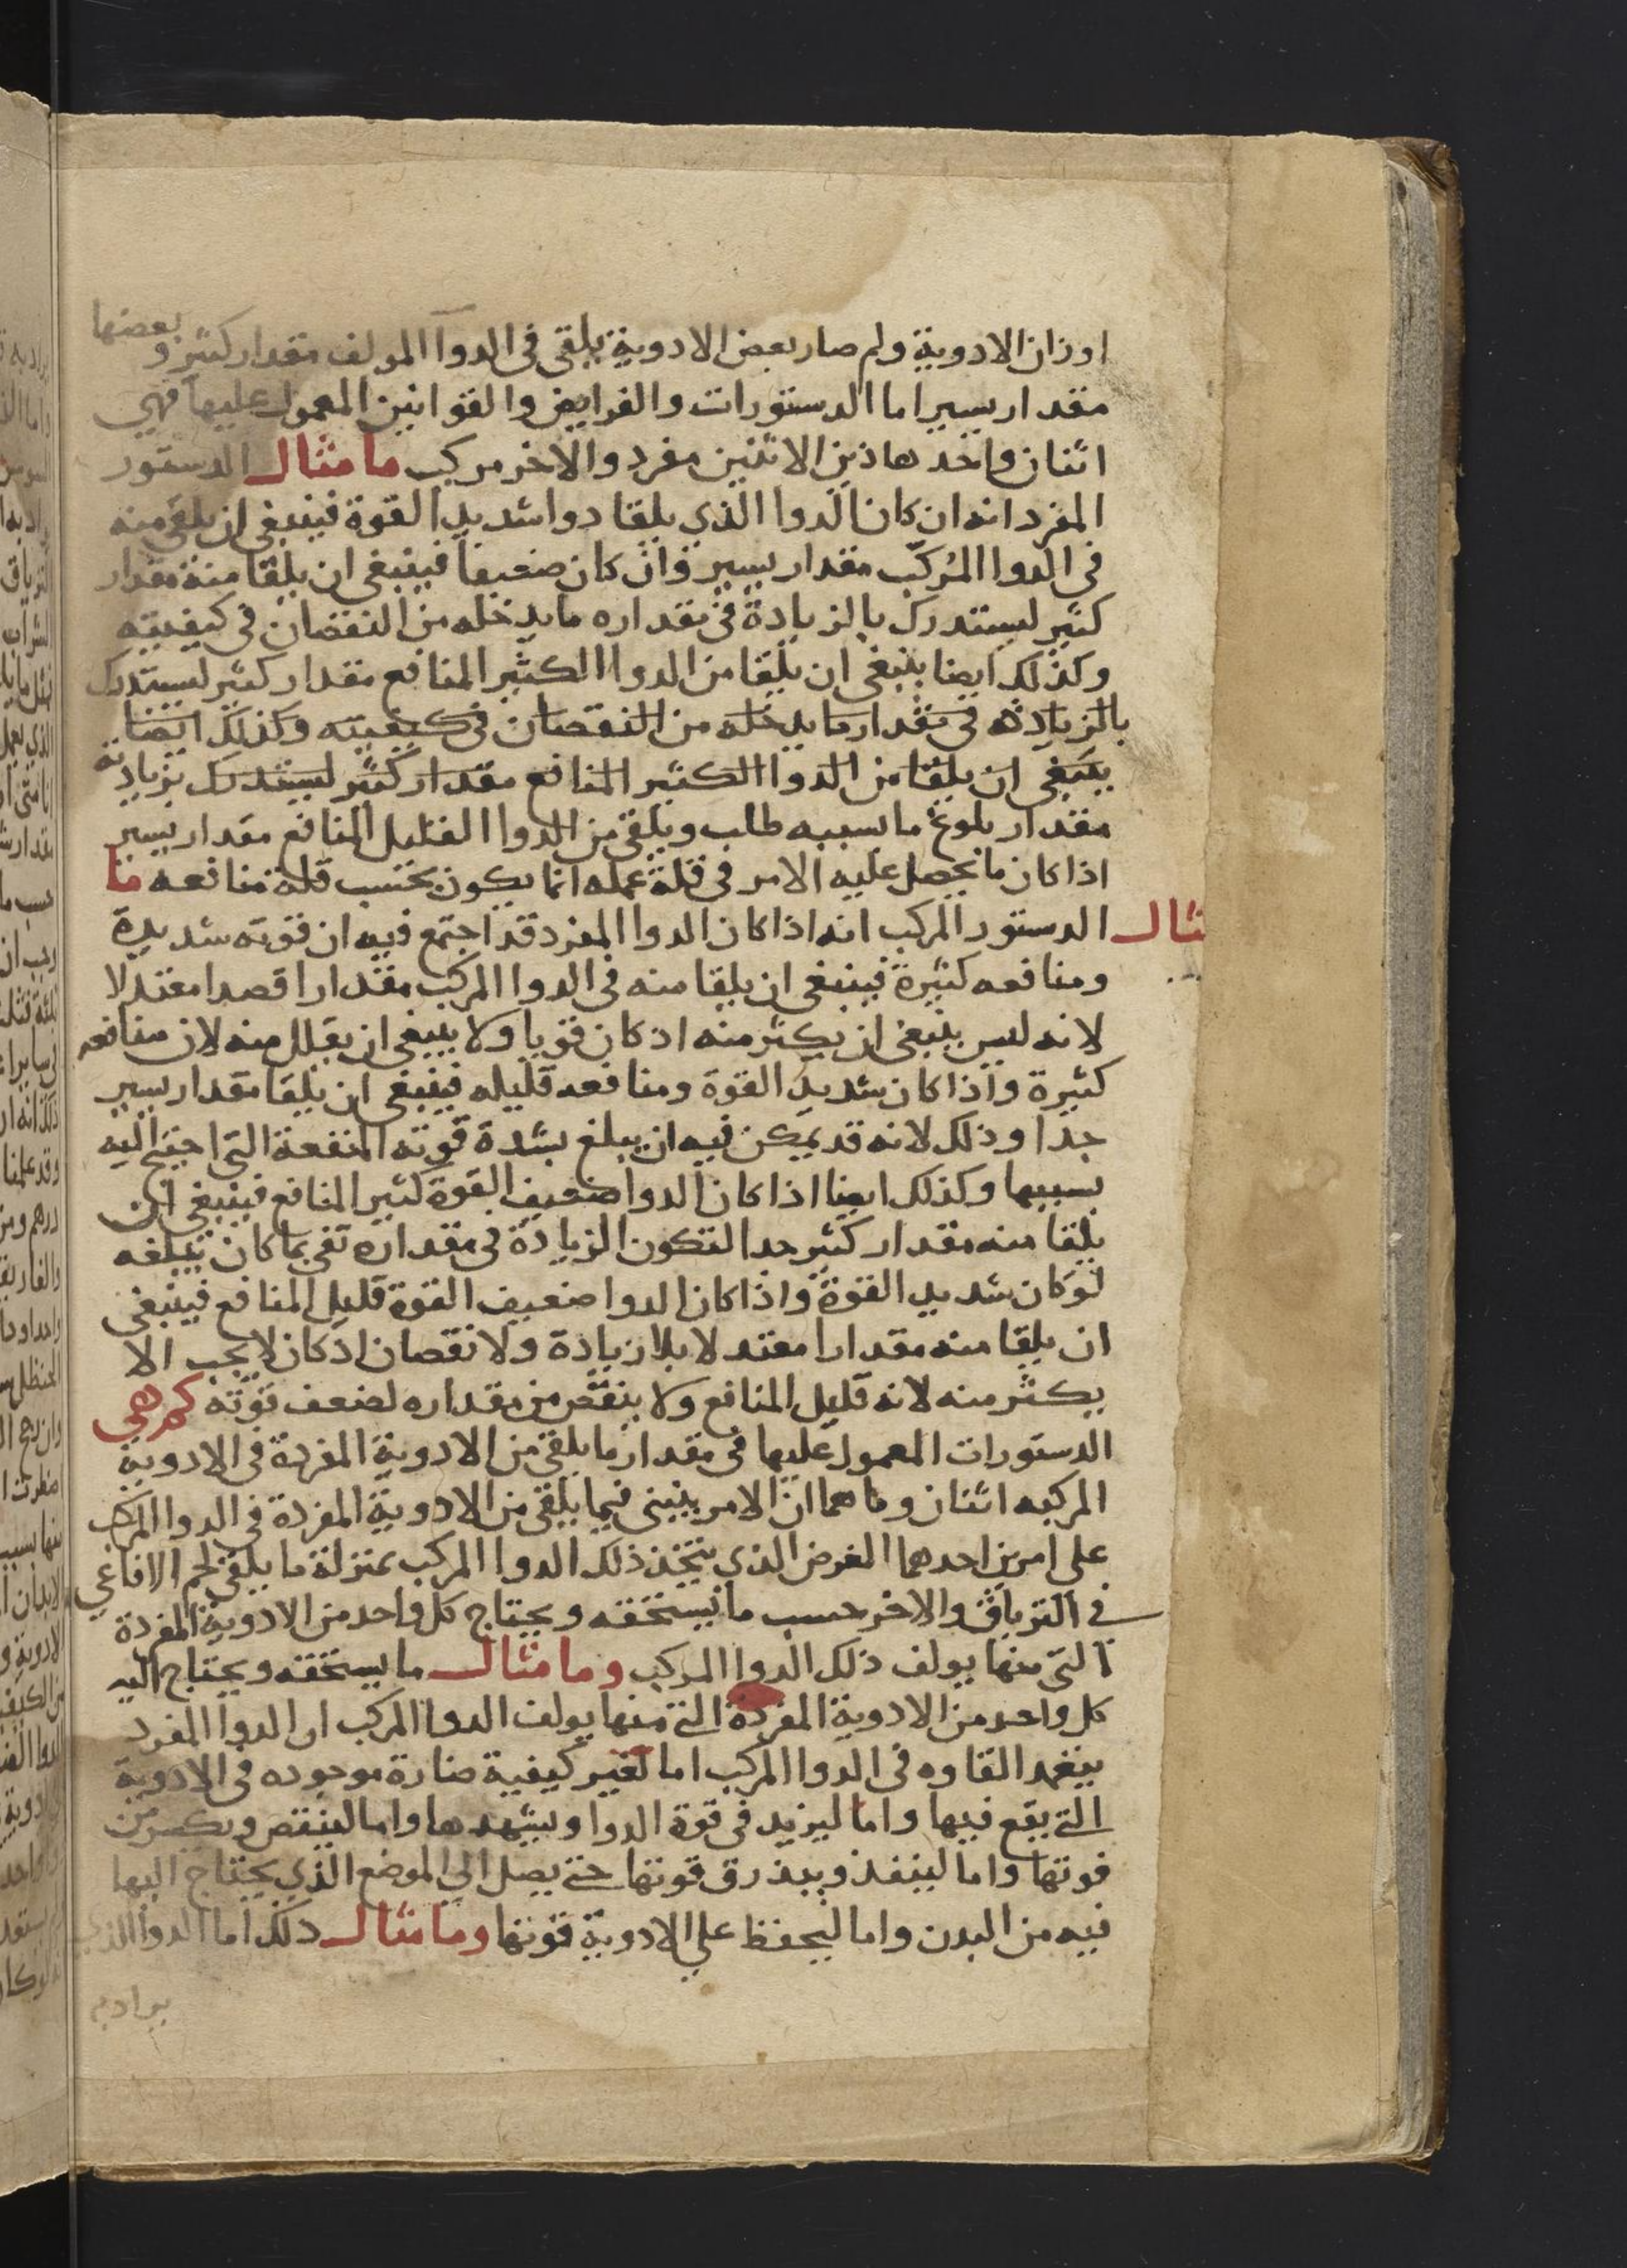 اوزان الادوية ولم صار بعض الادوية يلقى فى الدوا المولف مقدار كثير وبعضها
مقدار يسير اما الدستورات والفرايض والقوانين المعمول عليها فهي
اثنان واحد هاذين الاثنين مفرد والاخر مركب ما مثال الدستور
المفرد انه ان كان الدوا الذي يلقا دوا شديد القوة فينبغى ان يلقى منه
فى الدوا المركب مقدار يسير وان كان ضعيفا فينبغى ان يلقا منه مقدار
كثير ليستدرك بالزيادة فى مقداره ما يدخله من النقصان فى كيفيته
وكذلك ايضا ينبغى ان يلقا من الدوا الكثير المنافع مقدار كثير ليستدرك
بالزيادة فى مقدار ما يدخله من النقصان فى كيفيته وكذلك ايضا
ينبغى ان يلقا من الدوا الكثير المنافع مقدار كثير ليستدرك بزيادة
مقدار بلوغ ما بسببه طلب ويلقى من الدوا القليل المنافع مقدار يسير
اذا كان ما يحصل عليه الامر فى قلة عمله انما يكون بحسب قلة منافعه ما
مثال الدستور المركب انه اذا كان الدوا المفرد قد اجتمع فيه ان قوته شديدة
ومنافعه كثيرة فينبغى ان يلقا منه فى الدوا المركب مقدارا قصدا معتدلا
لانه ليس ينبغى ان يكثر منه اذ كان قويا ولا ينبغى ان يقلل منه لان منافعه
كثيرة واذا كان شديد القوة ومنافعه قليله فينبغى ان يلقا مقدار يسير
جدا وذلك لانه قد يمكن فيه ان يبلغ بشدة قوته المنفعة التى احتيج اليه
بسببها وكذلك ايضا اذا كان الدوا ضعيف القوة كثير المنافع فينبغى ان
يلقا منه مقدار كثير جدا لتكون الزيادة فى مقداره تفى بما كان يبلغه
لو كان شديد القوة واذا كان الدوا ضعيف القوة قليل المنافع فينبغى
ان يلقا منه مقدارا معتدلا بلا زيادة ولا نقصان اذ كان لا يجب الا
يكثر منه لانه قليل المنافع ولا ينقص من مقداره لضعف قوته كم هي
الدستورات المعمول عليها فى مقدار ما يلقى من الادوية المفردة فى الادوية
المركبه اثنان وما هما ان الامر ينبنى فيما يلقى من الادوية المفردة فى الدوا المركب
على امرين احدهما الغرض الذي يتخذ ذلك الدوا المركب بمنزلة ما يلقى لحم الافاعي
في الترياق والاخر حسب ما يستحقه ويحتاج كل واحد من الادوية المفردة
التى منها يولف ذلك الدوا المركب وما مثال ما يستحقه ويحتاج اليه
كل واحد من الادوية المفردة التى منها يولف الدوا المركب ان الدوا المفرد
القاوه فى الدوا المركب اما لتغير كيفية ضارة موجوده فى الادوية
التى يقع فيها واما ليزيد فى قوة الدوا ويشهدها واما لينقص ويكسر من
قوتها واما لينفذ ويبذرق قوتها حتى يصل الي الموضع الذي يحتاج اليها
فيه من البدن واما ليحفظ علي الادوية قوتها وما مثال ذلك اما الدوا الذي
يراد به